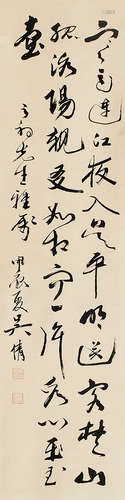 寒雨連江夜入吳平明送客楚山
孤洛陽親友如相問一片冰心在玉
壺
先生雅屬
夏吳倩